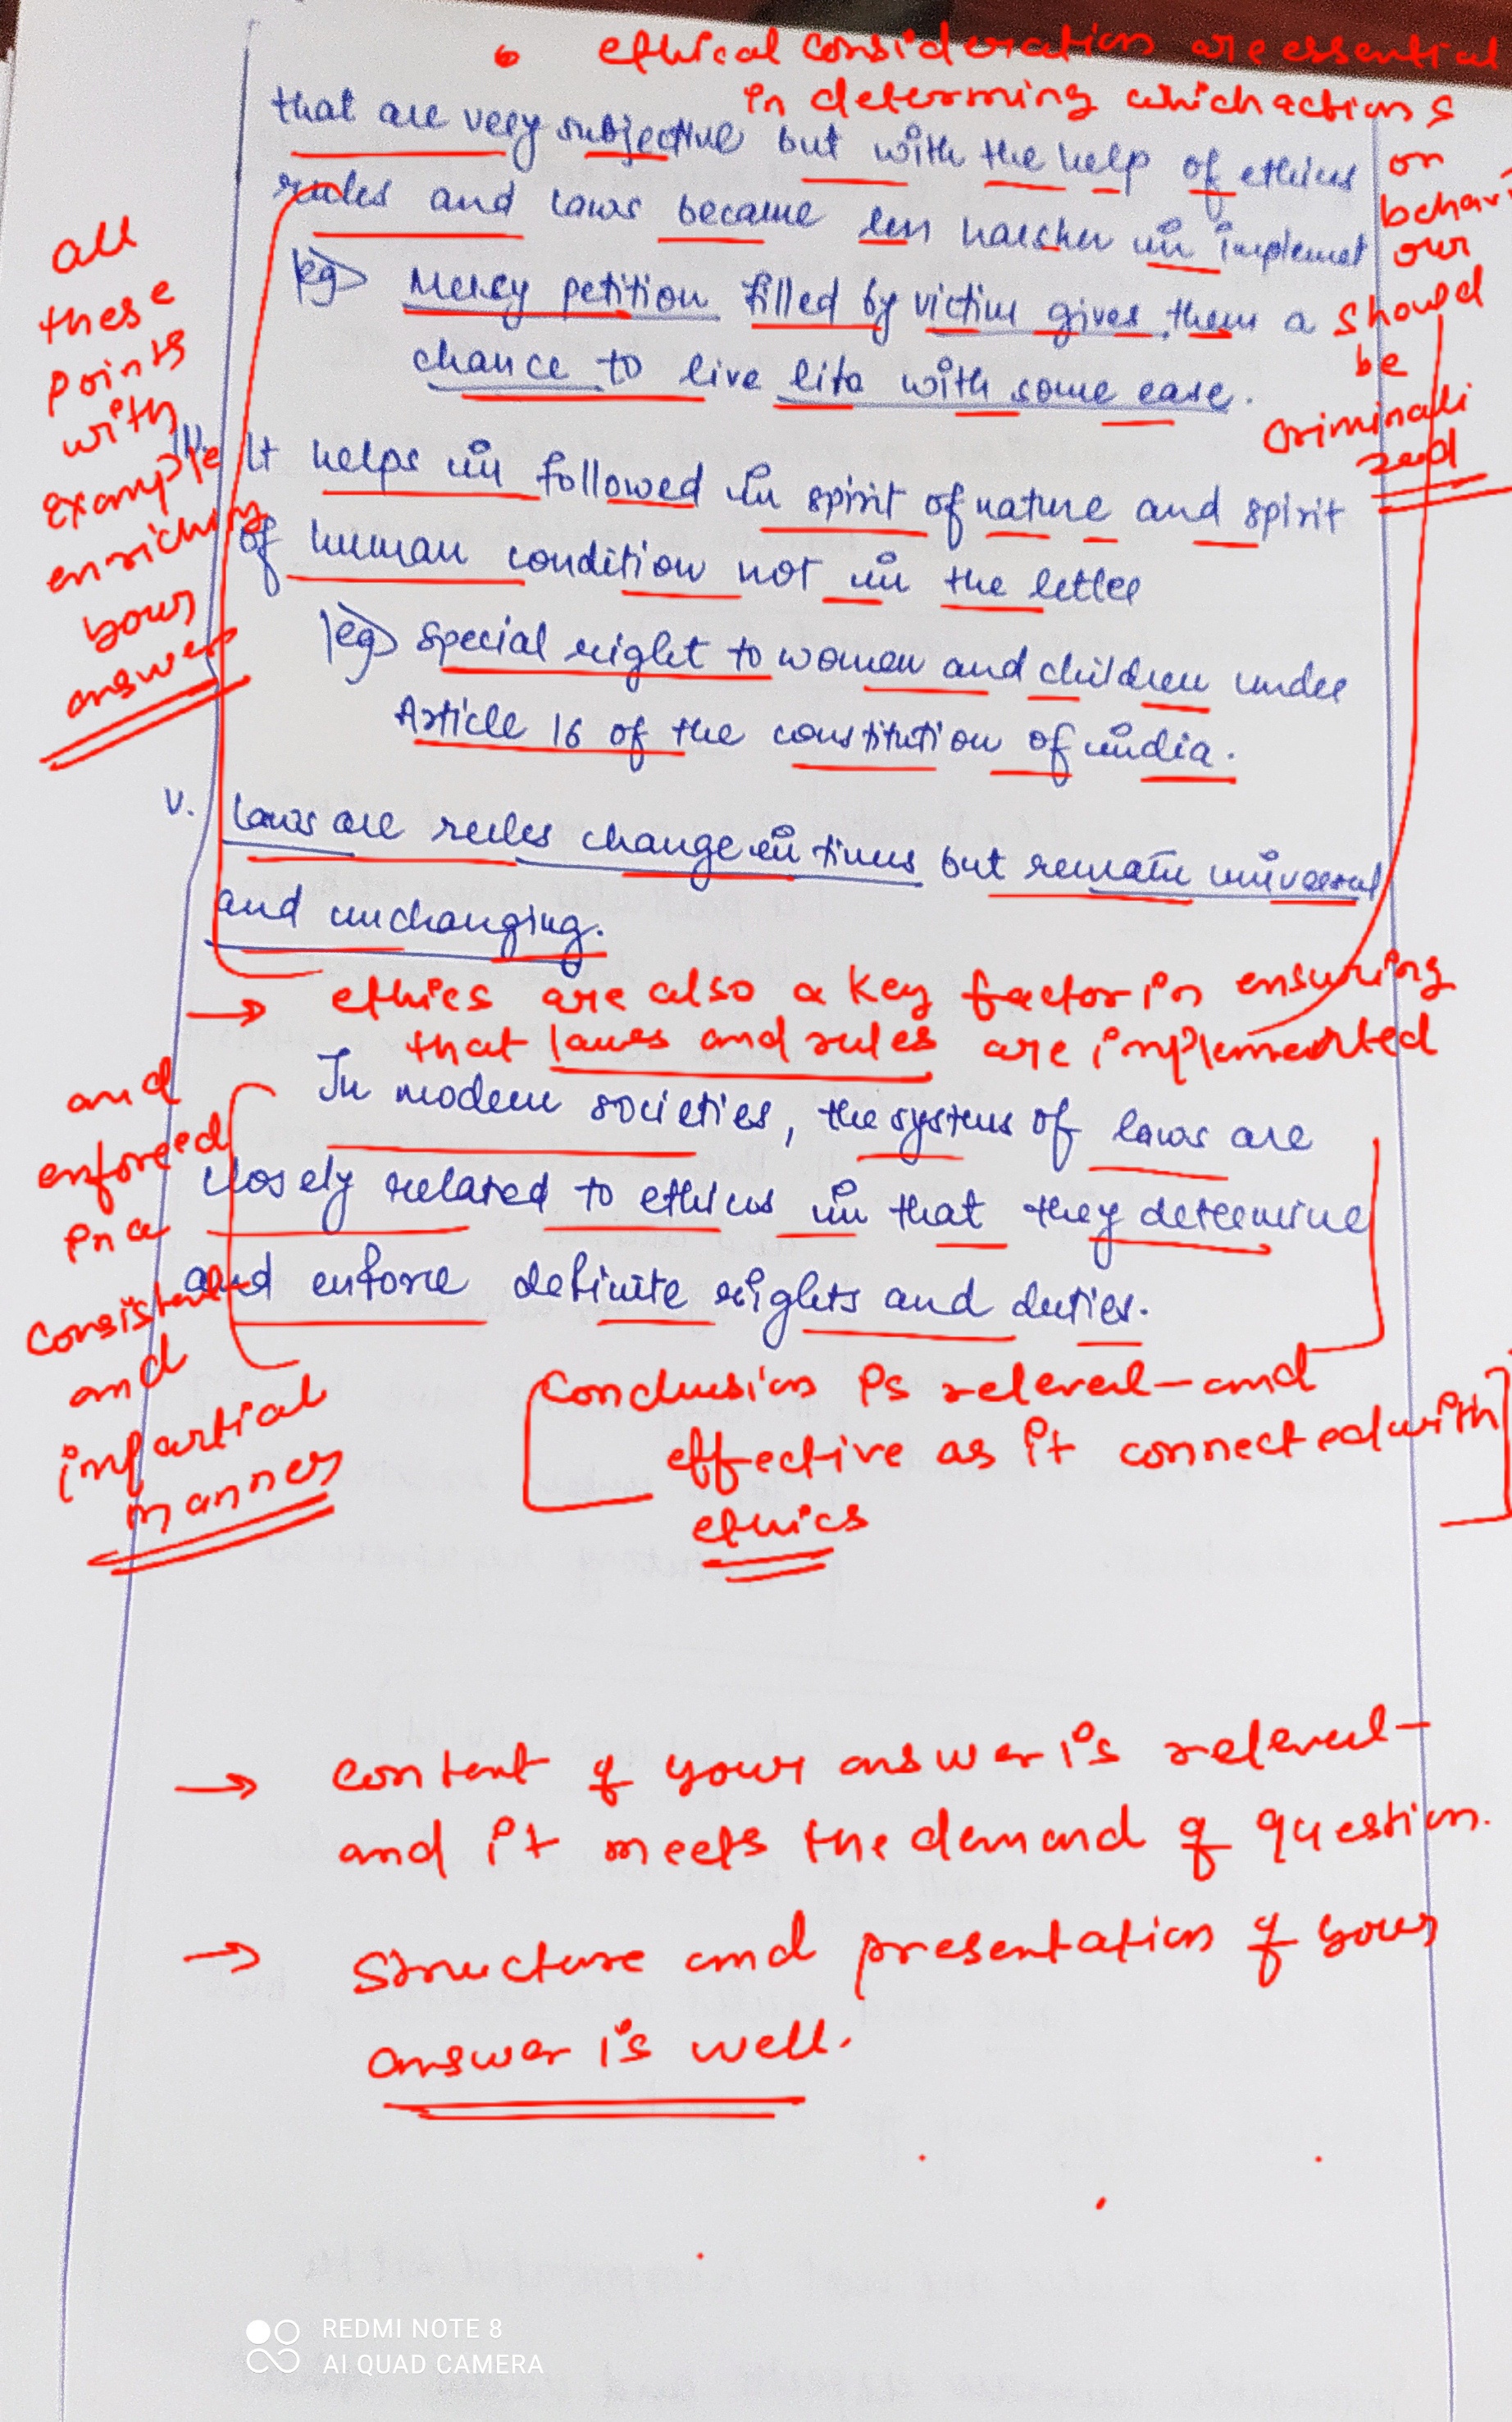 • ethical consideration are essential
in determining which actions
or
behavi
our
should
be
criminali
zed
that are very subjective but with the help of ethics
rules and laws became less harsher in implemet
eg) Mercy petition filled by victim gives them a
chance to live life with some ease.
all
these
points
with
example
enriching
your
answer
IV. It helps in followed in spirit of nature and spirit
of human condition not in the letter
eg) special right to women and children under
Article 16 of the constitution of india.
V. laws are rules change in times but remain universal
and unchanging.
→ ethics are also a key factor in ensuring
that laws and rules are implemented
and
enforced
in a
consistent
and
impartial
manner
In modern societies, the systems of laws are
closely related to ethics in that they determine
and enforce definite rights and duties.
Conclusion is relevent and
effective as it connected with
ethics
→ content of your answer is relevent
and it meets the demand of question.
→ structure and presentation of your
answer is well.
REDMI NOTE 8
AI QUAD CAMERA